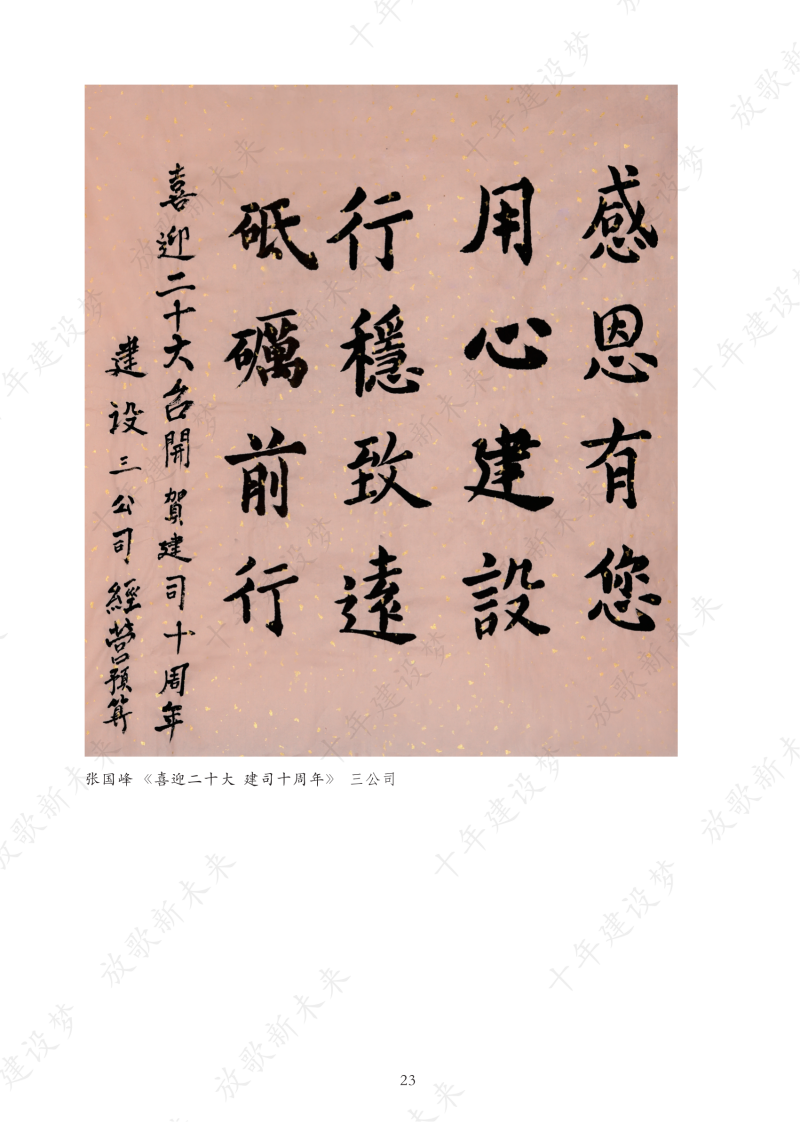 感恩有您
用心建設
行穩致遠
砥礪前行
喜迎二十大召開賀建司十周年
建设三公司經营預算
张国峰《喜迎二十大 建司十周年》 三公司
23
十年建设梦 放歌新未来